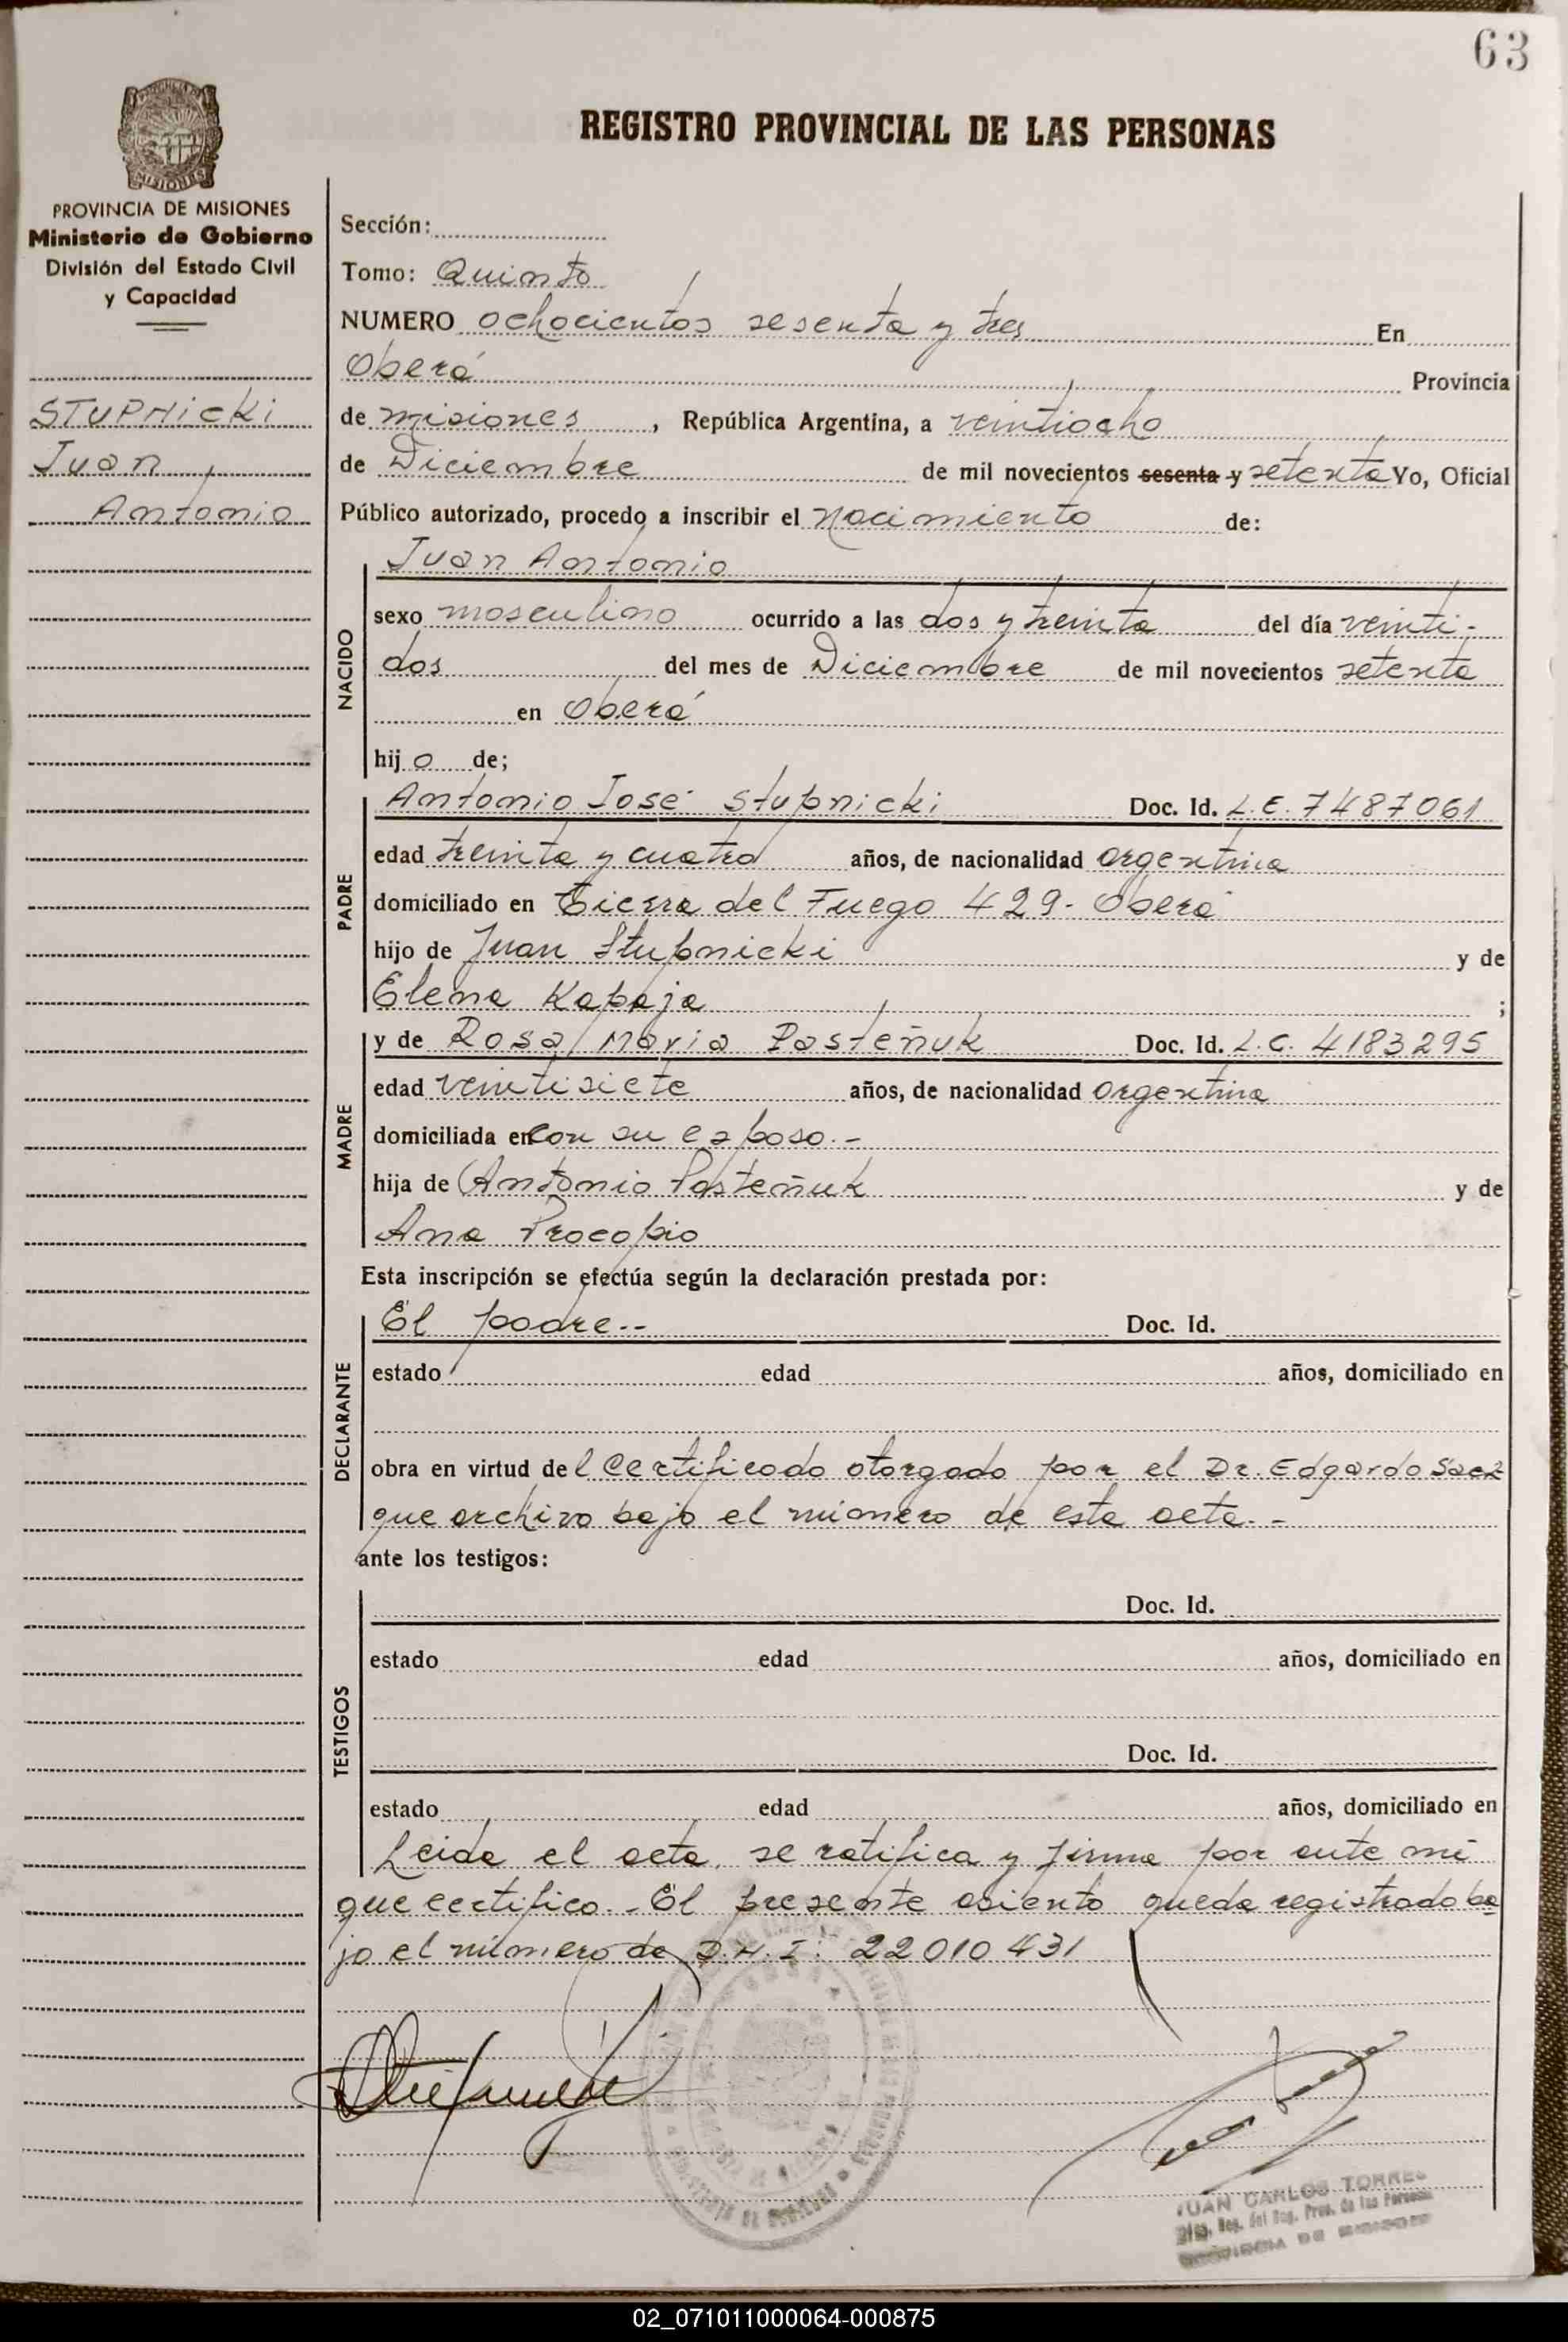 63
REGISTRO PROVINCIAL DE LAS PERSONAS
PROVINCIA DE MISIONES
Ministerio de Gobierno
División del Estado Civil
y Capacidad
STUPNICKI
Juan
Antonio
Sección:
Tomo: Quinto
NUMERO ochocientos sesenta y tres En
Oberá Provincia
de misiones, República Argentina, a veintiocho
de Diciembre de mil novecientos sesenta y setenta Yo, Oficial
Público autorizado, procedo a inscribir el nacimiento de:
NACIDO
Juan Antonio
sexo masculino ocurrido a las dos y treinta del día veinti-
dos del mes de Diciembre de mil novecientos setenta
en Oberá
hijo de;
PADRE
Antonio José Stupnicki Doc. Id. L.E. 7487061
edad treinta y cuatro años, de nacionalidad argentina
domiciliado en Tierra del Fuego 429- Oberá
hijo de Juan Stupnicki y de
Elena Kapaja ;
MADRE
y de Rosa María Posteñuk Doc. Id. L.C. 4183295
edad veintisiete años, de nacionalidad argentina
domiciliada en con su esposo.-
hija de Antonio Posteñuk y de
Ana Procopio
Esta inscripción se efectúa según la declaración prestada por:
DECLARANTE
El padre.- Doc. Id.
estado edad años, domiciliado en
obra en virtud del certificado otorgado por el Dr. Edgardo Saez
que archivo bajo el número de esta acta.-
ante los testigos:
TESTIGOS
Doc. Id.
estado edad años, domiciliado en
Doc. Id.
estado edad años, domiciliado en
Leida el acta, se ratifica y firma por ante mi
que certifico.- El presente asiento queda registrado ba
jo el número de D.N.I: 22010431
JUAN CARLOS TORRES
Reg. del Reg. Prov. de las Personas
PROVINCIA DE MISIONES
02_071011000064-000875